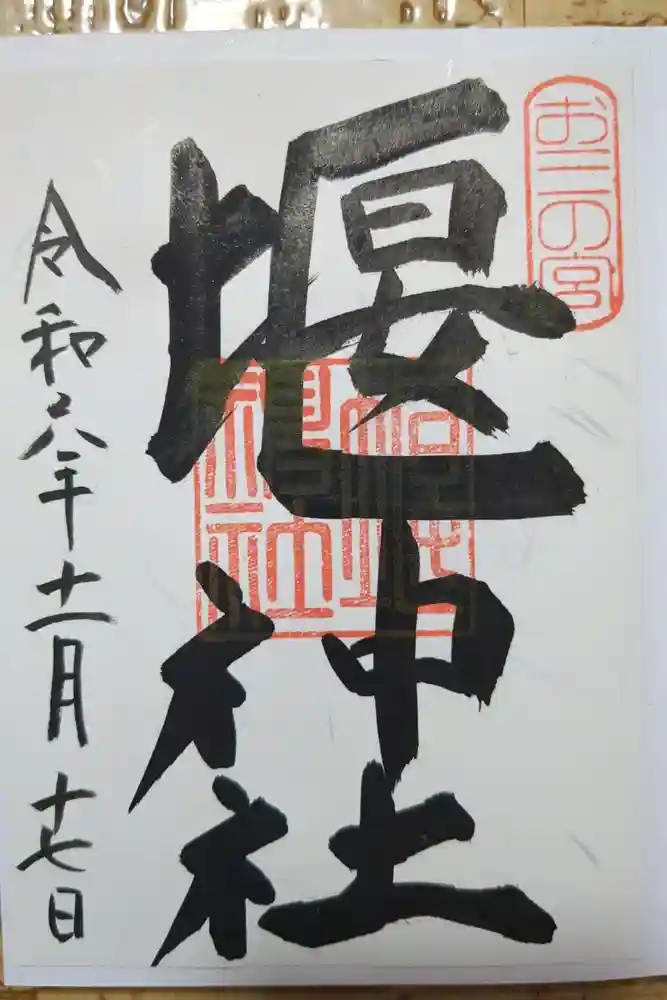 お三の宮
堰神社
令和六年十一月十七日